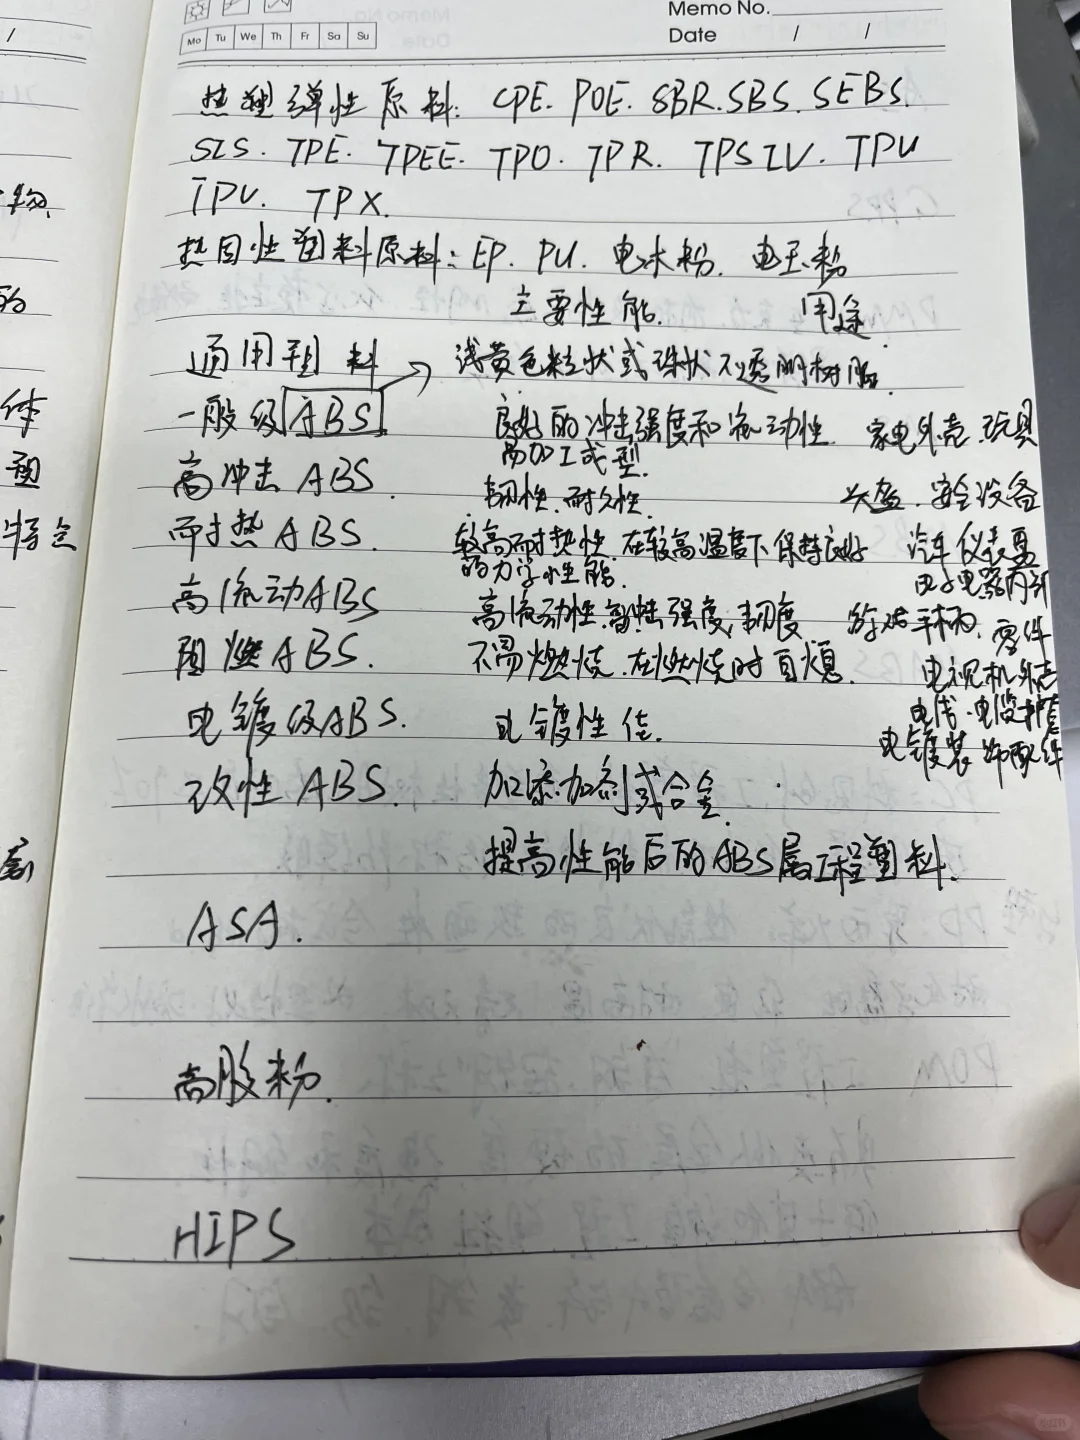 Memo No.
Mo Tu We Th Fr Sa Su
Date / /
热塑弹性原料: CPE. POE. SBR. SBS. SEBS.
SIS. TPE. TPEE. TPO. TPR. TPSIV. TPU
TPV. TPX.
热固性塑料原料: EP. PU. 电木粉. 电玉粉
主要性能. 用途.
通用塑料 → 浅黄色粒状或珠状不透明树脂.
一般级 ABS 良好的冲击强度和流动性. 家电外壳. 玩具
易加工成型.
高冲击 ABS. 韧性. 耐久性. 头盔. 安全设备
耐热 ABS. 较高耐热性. 在较高温度下保持良好 汽车仪表盘
的力学性能. 电子电器内部
高流动ABS 高流动性. 强度. 韧度 手柄. 零件
阻燃 ABS. 不易燃烧. 在燃烧时自熄. 电视机外壳
电线. 电缆护套
电镀级ABS. 电镀性佳. 电镀装饰配件
改性 ABS. 加添加剂或合金.
提高性能后的ABS属工程塑料.
ASA.
高胶粉.
HIPS
体
特点